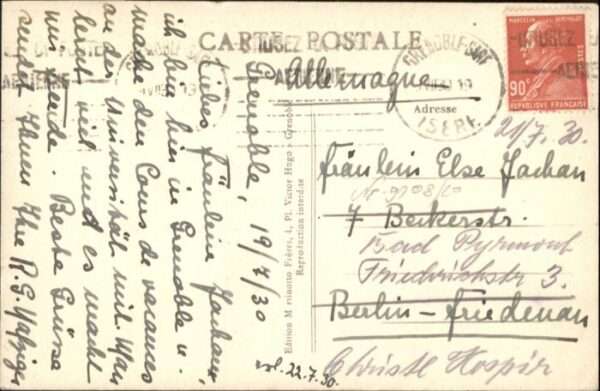 CARTE POSTALE
Allemagne
Adresse
GRENOBLE-GARE
ISERE
UTILISEZ
AERIENNE
MARCELIN BERTHELOT
90c
REPUBLIQUE FRANÇAISE
21/7.30.
Fräulein Else Jachan
7 Beckerstr.
Bad Pyrmont
Friedrichstr 3.
Berlin-Friedenau
Christl Hospiz
22.7.30.
Grenoble, 19/7/30
Liebes Fräulein Jachan,
ich bin hier in Grenoble u.
mache den Cours de vacances
an der Universität mit. Man
lernt viel und es macht
mir Freude. Beste Grüsse
sendet Ihnen Ihre R.G.
Edition Martinotto Frères, 4, Pl. Victor Hugo - Grenoble
Reproduction interdite